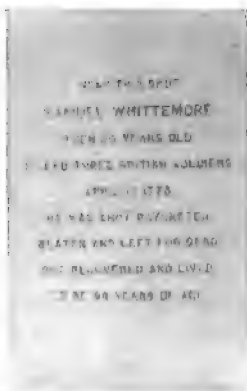 NEAR THIS SPOT
SAMUEL WHITTEMORE
THEN 80 YEARS OLD
KILLED THREE BRITISH SOLDIERS
APRIL 19 1775
HE WAS SHOT BAYONETED
BEATEN AND LEFT FOR DEAD
BUT RECOVERED AND LIVED
TO BE 98 YEARS OF AGE